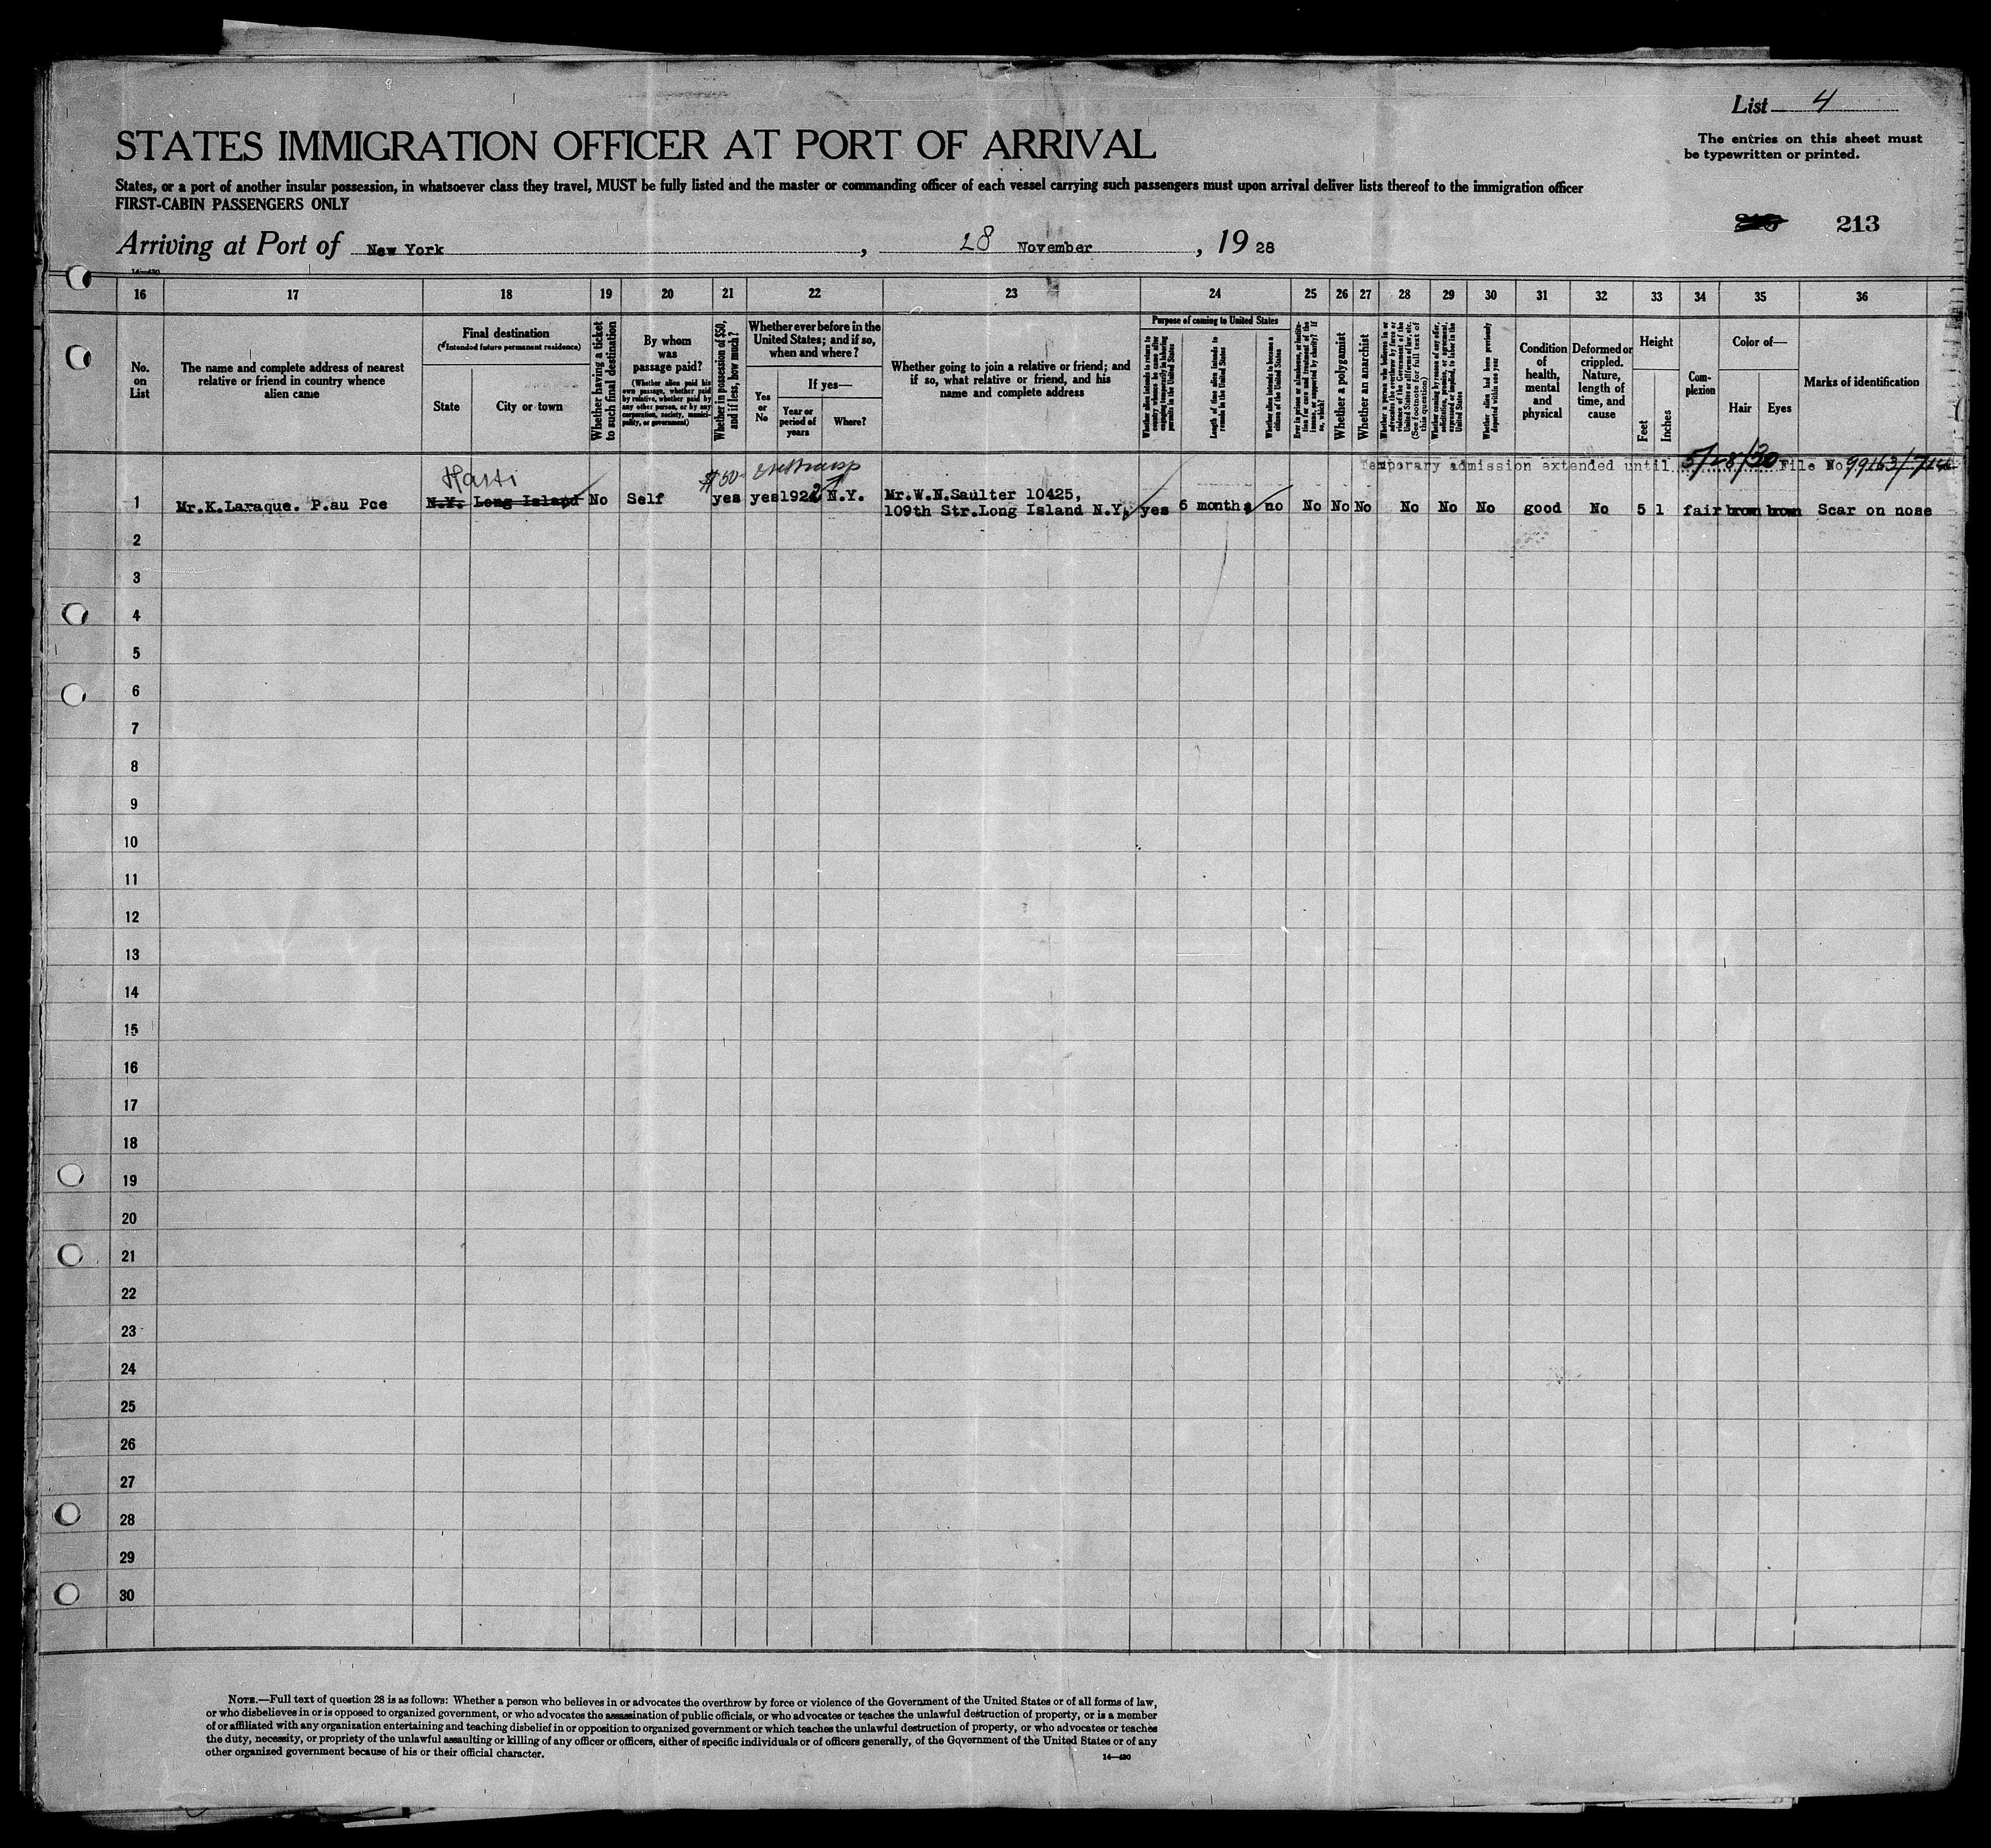 List 4
The entries on this sheet must
be typewritten or printed.
STATES IMMIGRATION OFFICER AT PORT OF ARRIVAL
States, or a port of another insular possession, in whatsoever class they travel, MUST be fully listed and the master or commanding officer of each vessel carrying such passengers must upon arrival deliver lists thereof to the immigration officer
FIRST-CABIN PASSENGERS ONLY
213
Arriving at Port of New York, 28 November, 19 28
14—430
16 17 18 19 20 21 22 23 24 25 26 27 28 29 30 31 32 33 34 35 36
No.
on
List
The name and complete address of nearest
relative or friend in country whence
alien came
Final destination
(Intended future permanent residence)
State
City or town
Whether having a ticket
to such final destination
By whom
was
passage paid?
(Whether alien paid his
own passage, whether paid
by relative, whether paid by
any other person, or by any
corporation, society, munici-
pality, or government)
Whether in possession of $50,
and if less, how much?
Whether ever before in the
United States; and if so,
when and where?
Yes
or
No
If yes—
Year or
period of
years
Where?
Whether going to join a relative or friend; and
if so, what relative or friend, and his
name and complete address
Purpose of coming to United States
Whether alien intends to return to
country whence he came after
engaging temporarily in laboring
pursuits in the United States
Length of time alien intends to
remain in the United States
Whether alien intends to become a
citizen of the United States
Ever in prison or almshouse, or institu-
tion for care and treatment of the
insane, or supported by charity? If
so, which?
Whether a polygamist
Whether an anarchist
Whether a person who believes in or
advocates the overthrow by force or
violence of the Government of the
United States or all forms of law, etc.
(See footnote for full text of
this question)
Whether coming by reason of any offer,
solicitation, promise, or agreement,
expressed or implied, to labor in the
United States
Whether alien had been previously
deported within one year
Condition
of
health,
mental
and
physical
Deformed or
crippled.
Nature,
length of
time, and
cause
Height
Feet
Inches
Com-
plexion
Color of—
Hair
Eyes
Marks of identification
Temporary admission extended until 5/28/30 File No
Haiti
$50
1 Mr.K.Laraque. P.au Pce N.Y. Long Island No Self yes yes 1922 N.Y. Mr.W.N.Saulter 10425,
109th Str.Long Island N.Y. yes 6 months no No No No No No No good No 5 1 fair brown brown Scar on nose
2
3
4
5
6
7
8
9
10
11
12
13
14
15
16
17
18
19
20
21
22
23
24
25
26
27
28
29
30
NOTE.—Full text of question 28 is as follows: Whether a person who believes in or advocates the overthrow by force or violence of the Government of the United States or of all forms of law,
or who disbelieves in or is opposed to organized government, or who advocates the assassination of public officials, or who advocates or teaches the unlawful destruction of property, or is a member
of or affiliated with any organization entertaining and teaching disbelief in or opposition to organized government or which teaches the unlawful destruction of property, or who advocates or teaches
the duty, necessity, or propriety of the unlawful assaulting or killing of any officer or officers, either of specific individuals or of officers generally, of the Government of the United States or of any
other organized government because of his or their official character.
14—430